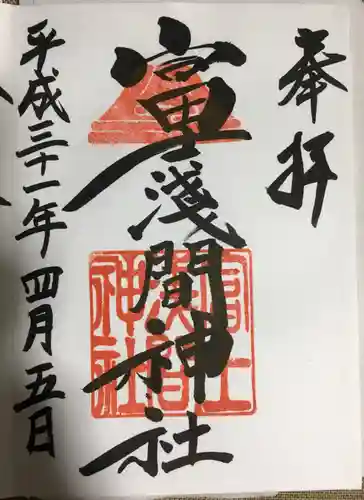 奉拝
富士浅間神社
富士淺間神社
平成三十一年四月五日